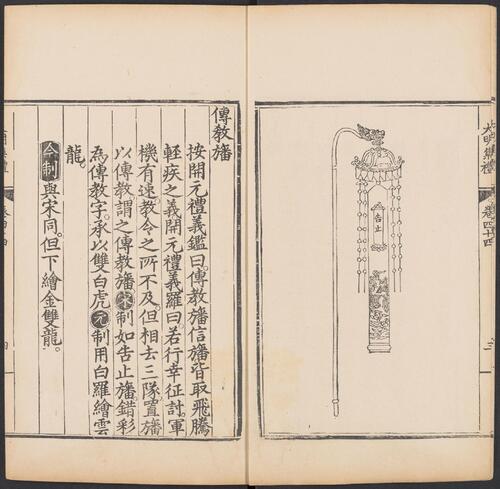 大明集禮
卷四十四
告止
傳教旛
按開元禮義鑑曰。傳教旛信旛皆取飛騰
輕疾之義開元禮義羅曰若行幸征討。軍
機有速。教令之所不及。但相去三隊。置旛
以傳教謂之傳教旛宋制如告止旛錯彩
為傳教字。承以雙白虎元制用白羅繪雲
龍。
今制與宋同。但下繪金雙龍。